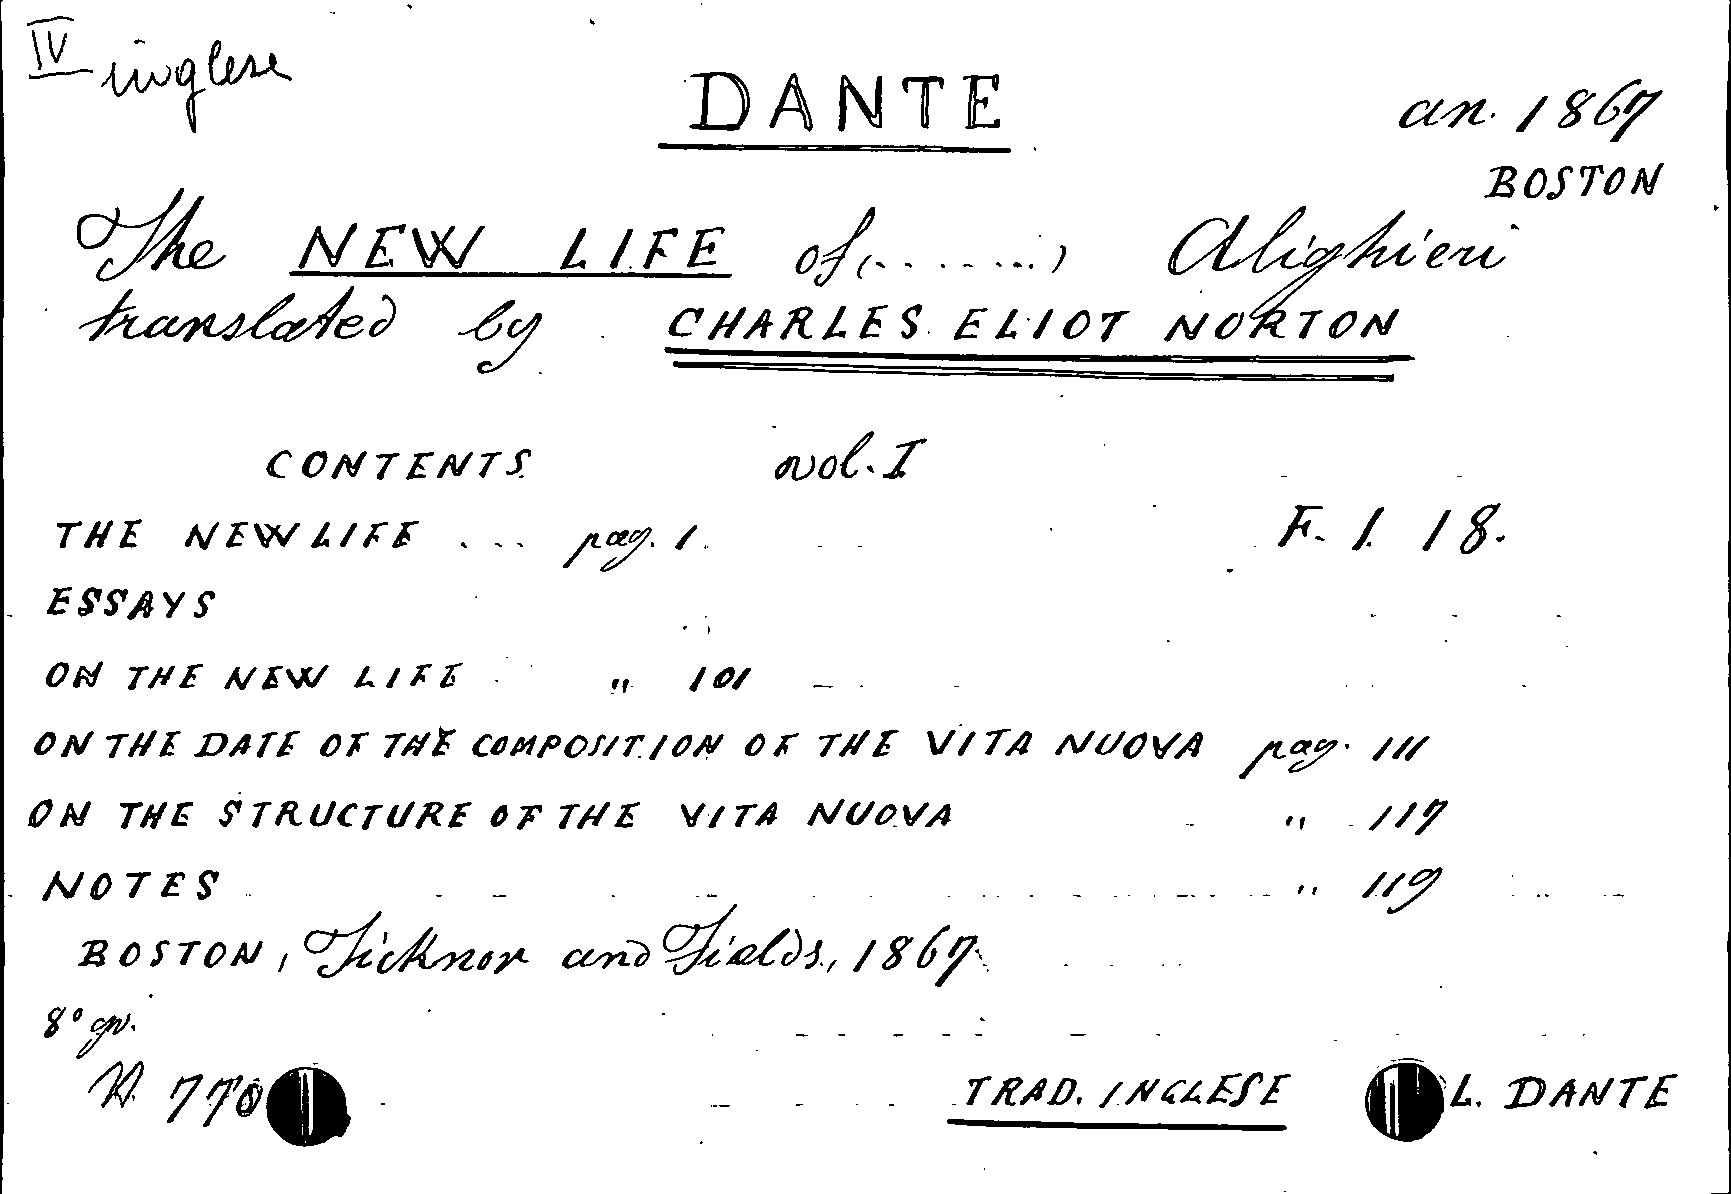 IV inglese
DANTE
an. 1867
BOSTON
The NEW LIFE of (.......) Alighieri
translated by CHARLES ELIOT NORTON
CONTENTS vol. I
THE NEW LIFE ... pag. 1
F. 1. 18.
ESSAYS
ON THE NEW LIFE " 101
ON THE DATE OF THE COMPOSITION OF THE VITA NUOVA pag. 111
ON THE STRUCTURE OF THE VITA NUOVA " 117
NOTES " 119
BOSTON, Ticknor and Fields, 1867
8° gr.
N. 770
TRAD. INGLESE
L. DANTE